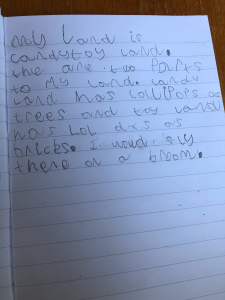 my Land is
candytoy land.
the are two Parts
to my land. candy
Land has lollipops as
trees and toy land
has LOL dxs as
bricks. I woud
there on a broom.